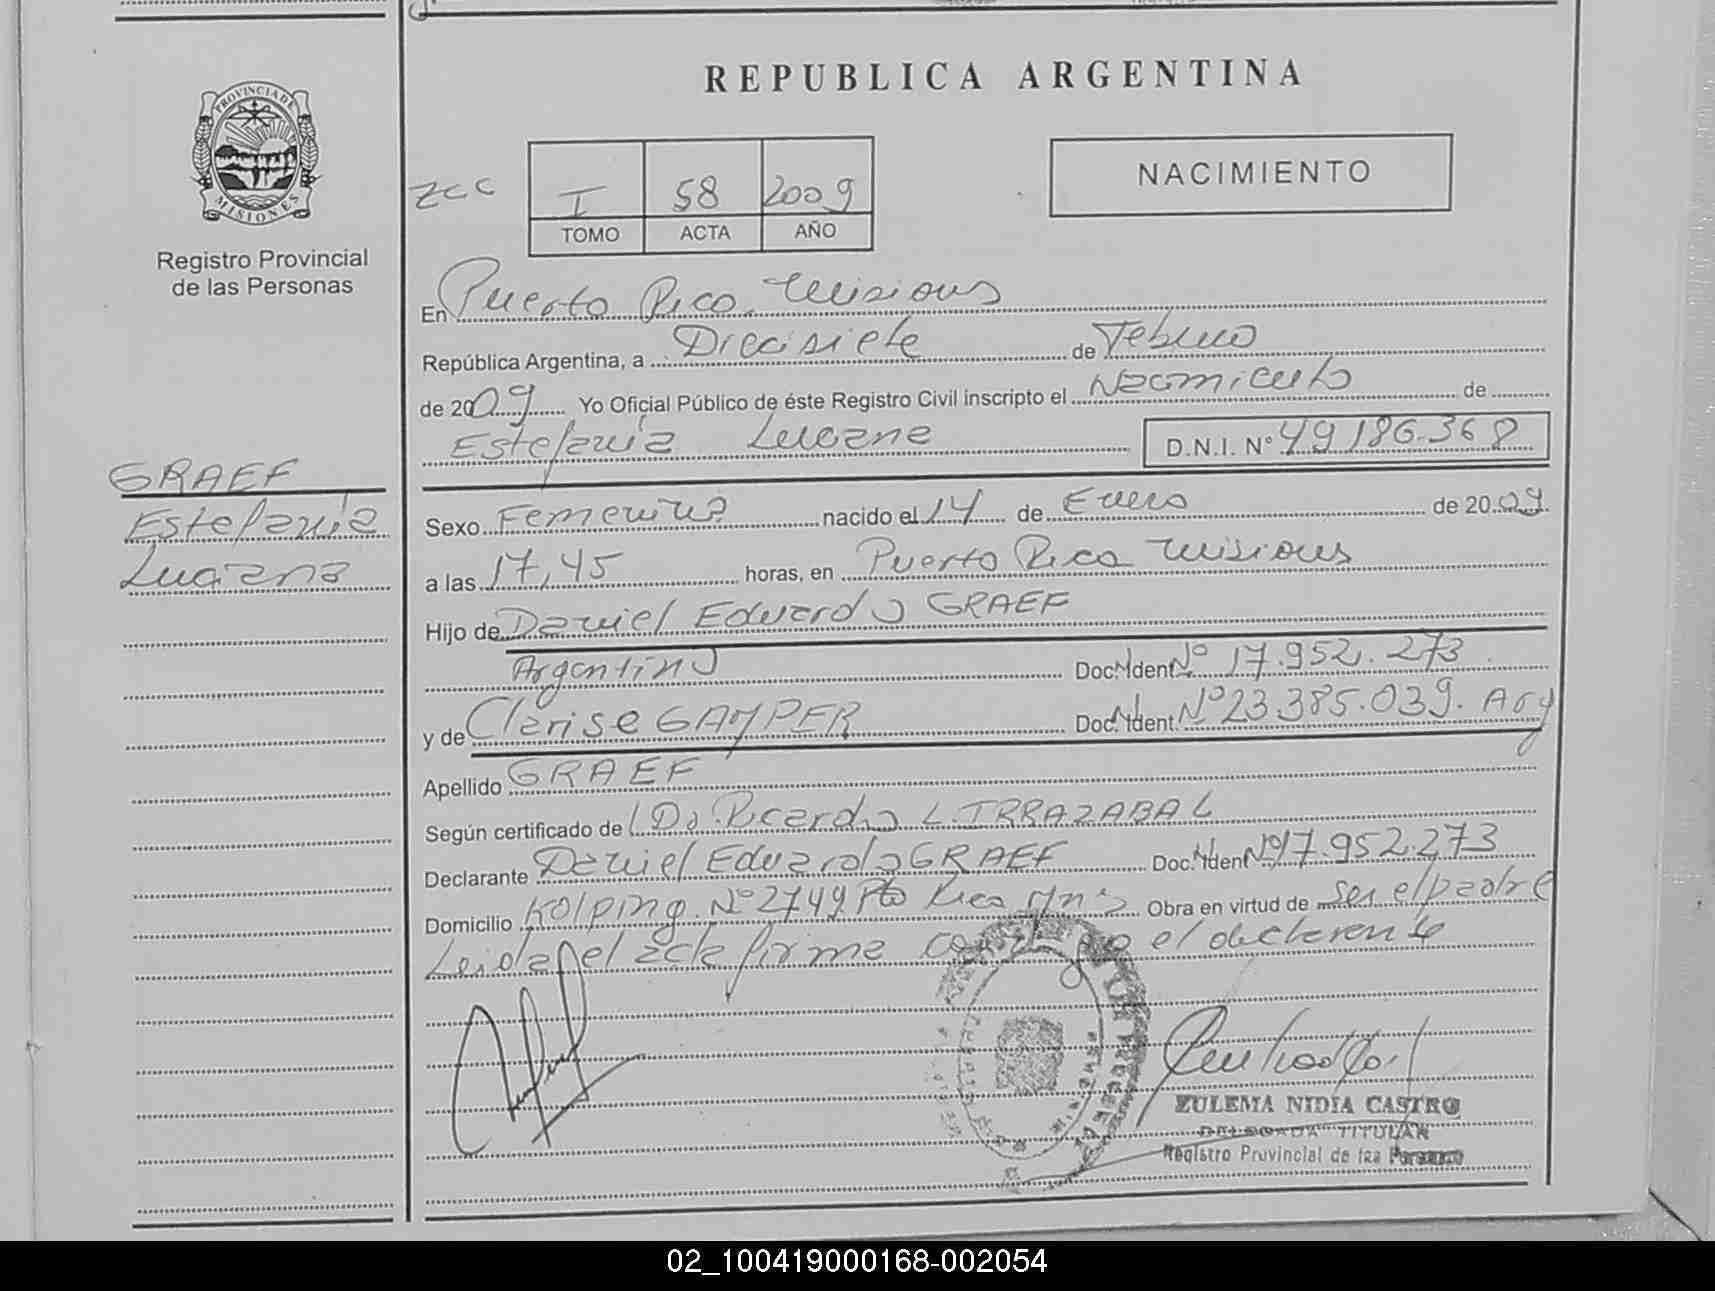 REPUBLICA ARGENTINA
PROVINCIA DE
MISIONES
Registro Provincial
de las Personas
zcc
I 58 2009
TOMO ACTA AÑO
NACIMIENTO
En Puerto Rico, Misiones
República Argentina, a Diecisiete de Febrero
de 2009 Yo Oficial Público de éste Registro Civil inscripto el Nacimiento de
Estefanía Luciana D.N.I. N° 49186.368
GRAEF
Estefanía
Luciana
Sexo Femenino nacido el 14 de Enero de 2009
a las 17,45 horas, en Puerto Rico Misiones
Hijo de Daniel Eduardo GRAEF
Argentino Doc. Ident. N° 17.952.273
y de Clarise GAMPER Doc. Ident. N° 23.385.039. Arg
Apellido GRAEF
Según certificado de Do. Ricardo L. IRRAZABAL
Declarante Daniel Eduardo GRAEF Doc. Iden N° 17.952.273
Domicilio Kolping N° 2749 Pto Rico Mns Obra en virtud de ser el padre
Leida el acta firma el declarante
ZULEMA NIDIA CASTRO
DELEGADA TITULAR
Registro Provincial de las Personas
02_100419000168-002054